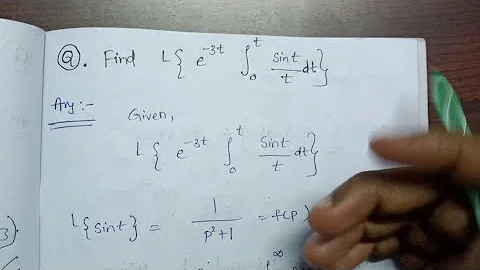 Q. Find L{ e^{-3t} ∫_0^t \frac{sint}{t} dt}
Ans :-
Given,
L{ e^{-3t} ∫_0^t \frac{sint}{t} dt}
L{sint} = \frac{1}{p^2+1} = f(p)
3).